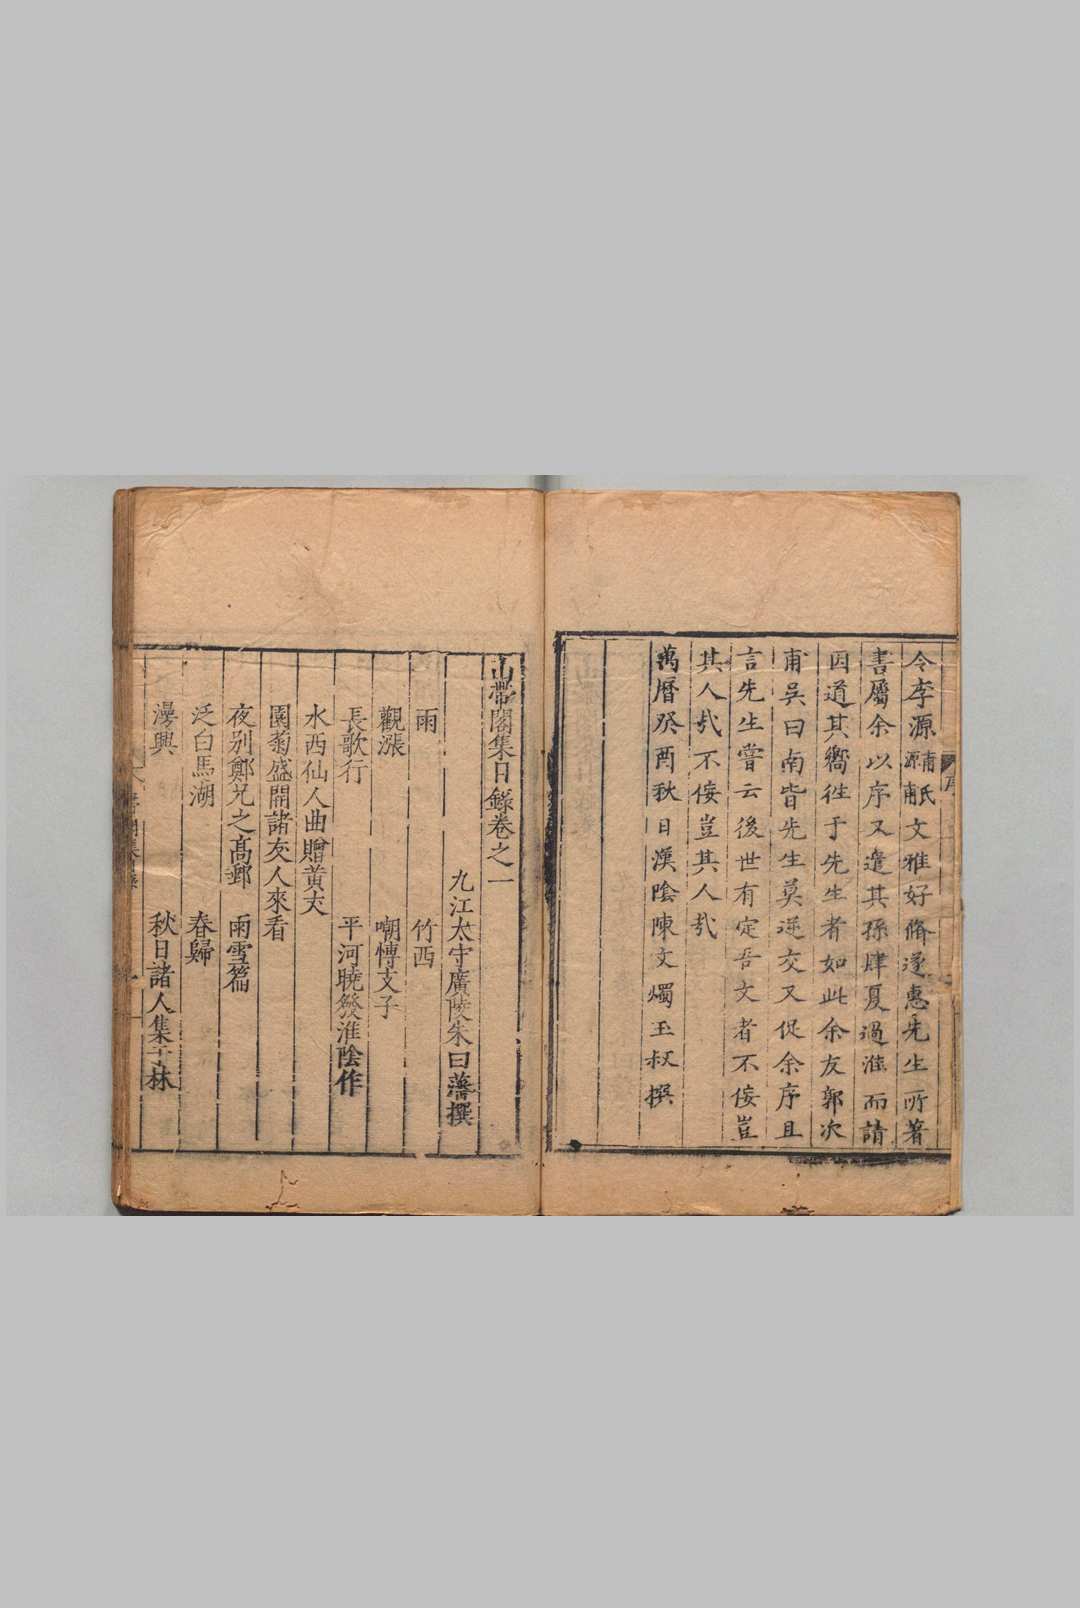 令李源甫源甫氏文雅好脩遂惠先生所著
書屬余以序又遣其孫肆夏過淮而請
因道其嚮徃于先生者如此余友郭次
甫吳曰南皆先生莫逆交又促余序且
言先生嘗云後世有定吾文者不佞豈
其人㦲不佞豈其人㦲
萬曆癸酉秋日漢陰陳文燭玉叔撰
山帶閣集目錄卷之一
九江太守廣陵朱曰藩撰
雨 竹西
觀漲 嘲慱文子
長歌行 平河曉發淮陰作
水西仙人曲贈黃夫
園菊盛開諸友人來看
夜別鄭兄之高郵 雨雪篇
泛白馬湖 春歸
漫興 秋日諸人集于林